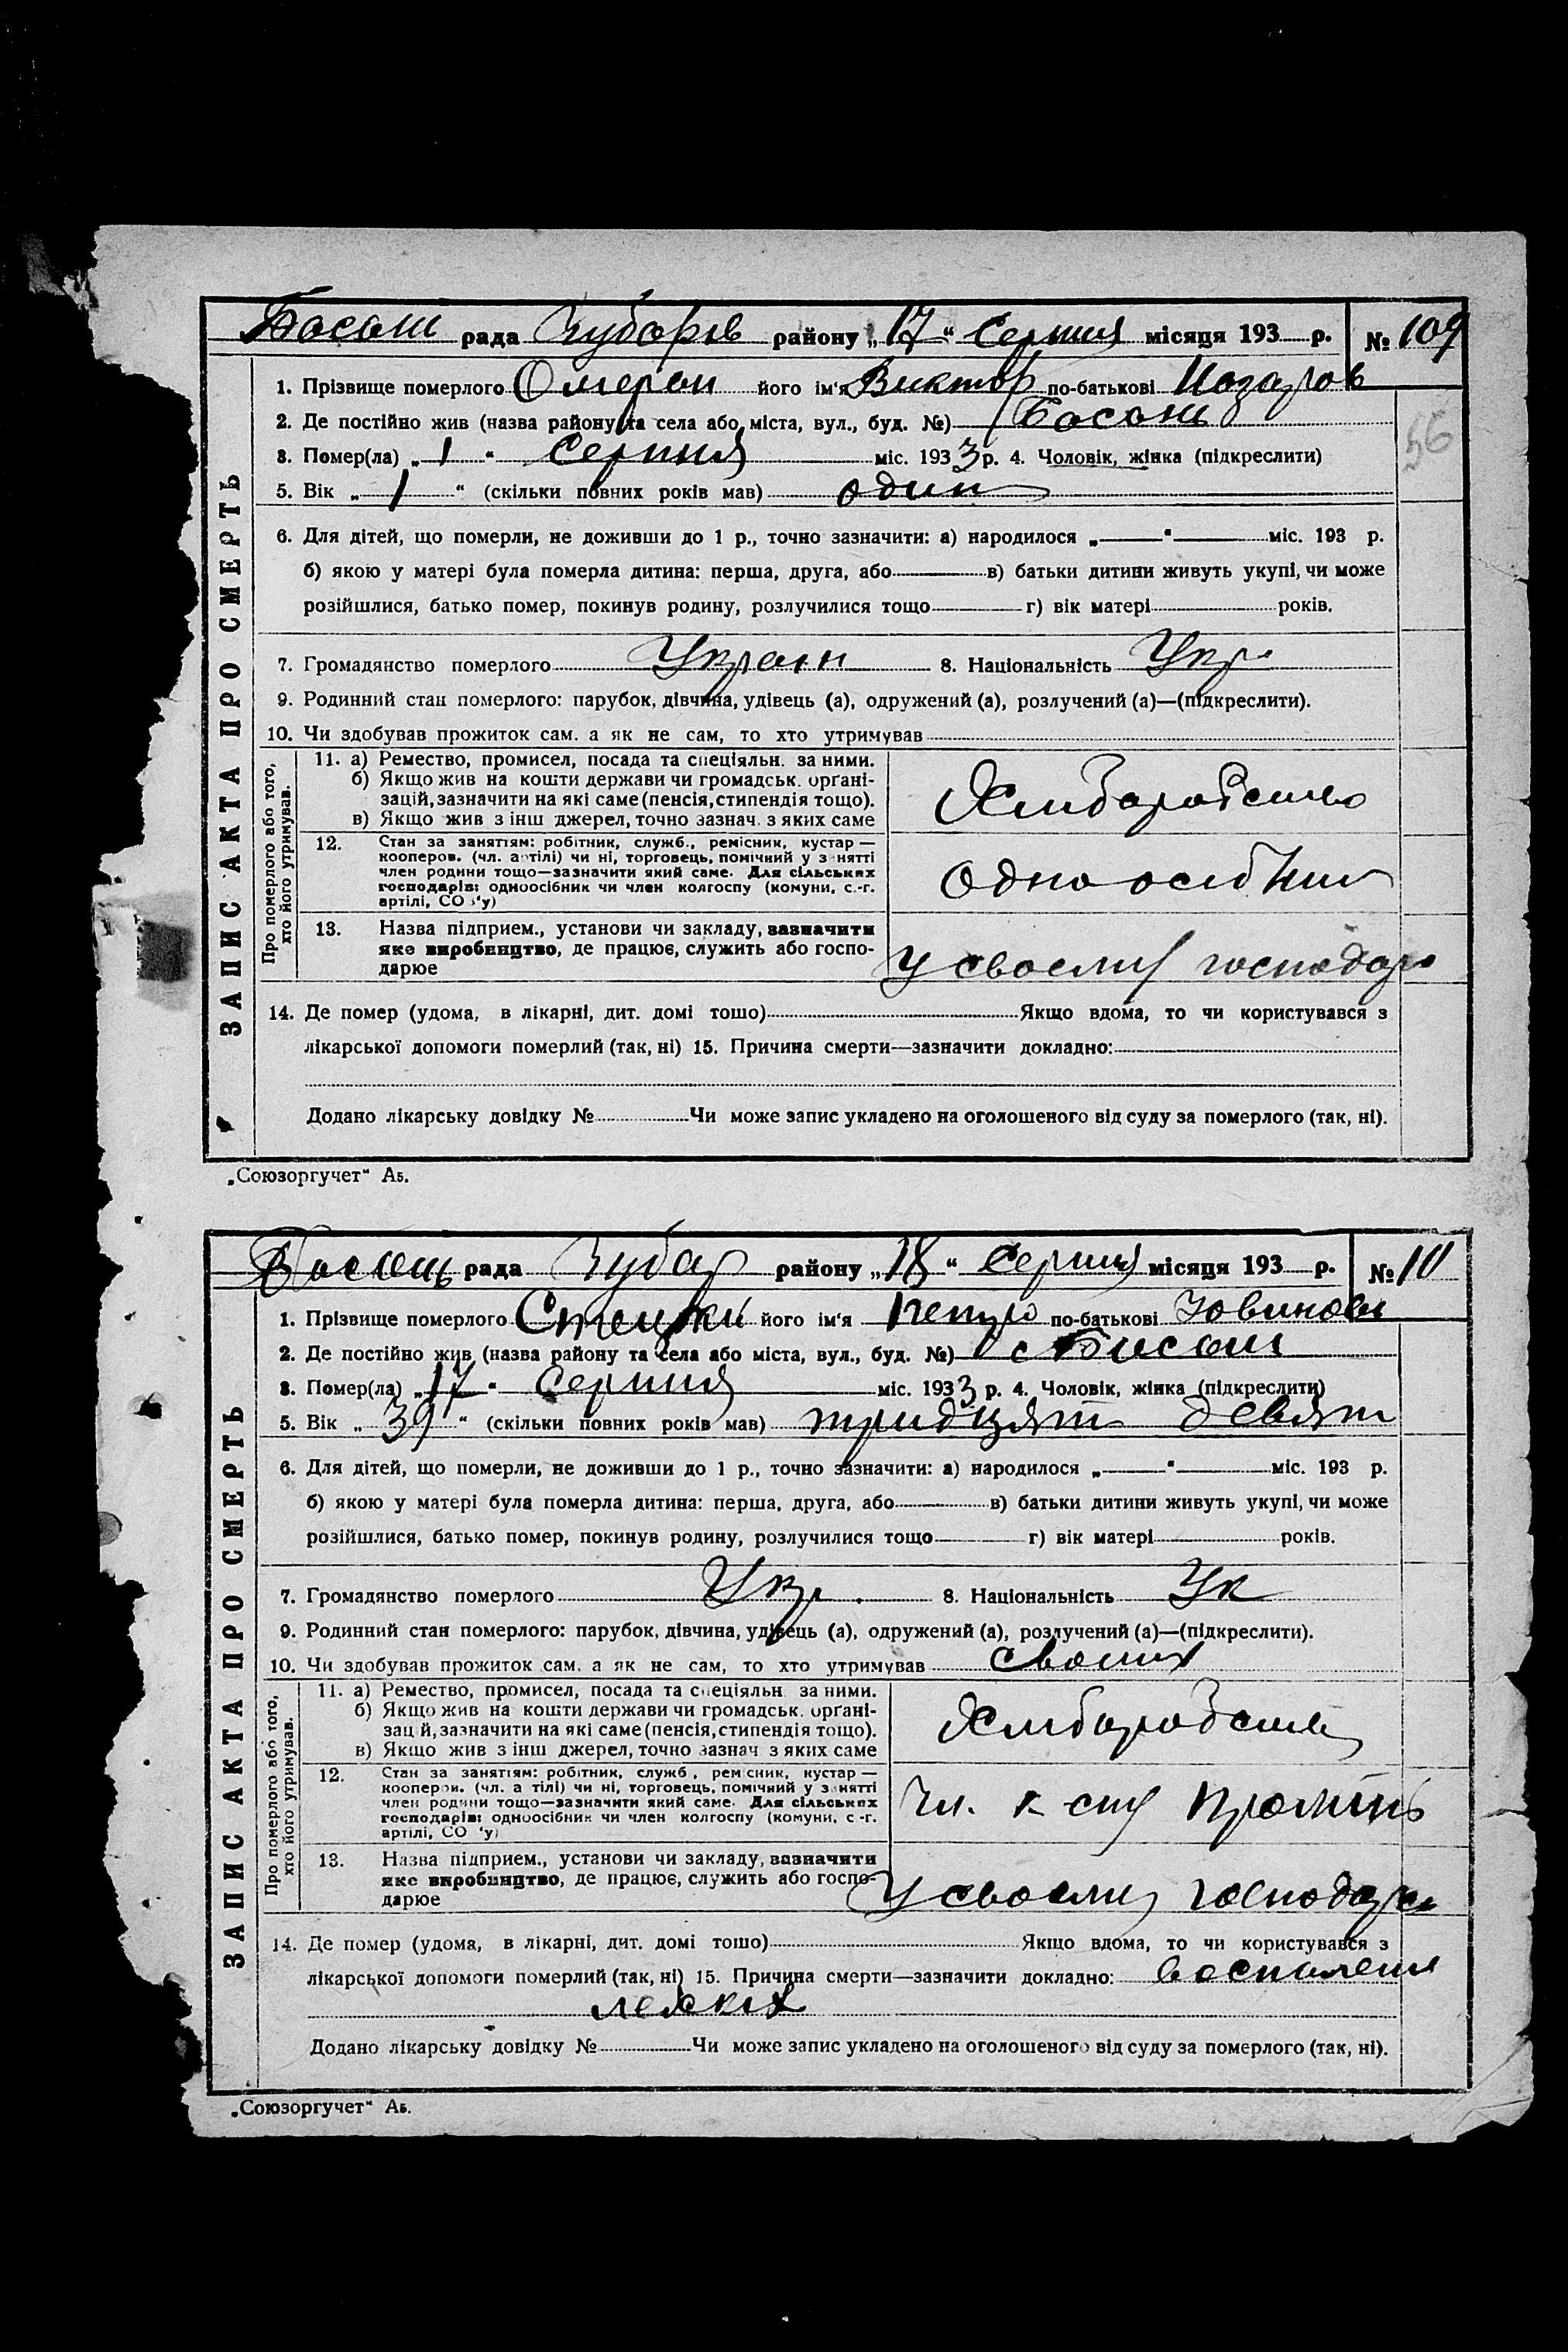 Басань рада Зубарів району „17“ Серпня місяця 193 р. № 109
1. Прізвище померлого його ім‘я Виктор по-батькові Назаров
2. Де постійно жив (назва району та села або міста, вул., буд. №) Басань
3. Помер(ла) „1“ Серпня міс. 1933 р. 4. Чоловік, жінка (підкреслити)
5. Вік „1“ (скільки повних років мав) один
6. Для дітей, що померли, не доживши до 1 р., точно зазначити: а) народилося „—“ міс. 193 р.
б) якою у матері була померла дитина: перша, друга, або в) батьки дитини живуть укупі, чи може
розійшлися, батько помер, покинув родину, розлучилися тощо г) вік матері років.
7. Громадянство померлого Украін 8. Національність Укр.
9. Родинний стан померлого: парубок, дівчина, удівець (а), одружений (а), розлучений (а)—(підкреслити).
10. Чи здобував прожиток сам, а як не сам, то хто утримував
11. а) Ремество, промисел, посада та спеціяльн. за ними.
б) Якщо жив на кошти держави чи громадськ. орґані-
зацій, зазначити на які саме (пенсія, стипендія тощо).
в) Якщо жив з інш джерел, точно зазнач. з яких саме
Хлиборобство
12. Стан за заняттям: робітник, служб., ремісник, кустар —
кооперов. (чл. артілі) чи ні, торговець, помічний у занятті
член родини тощо—зазначити який саме. Для сільських
господарів: одноосібник чи член колгоспу (комуни, с.-г.
артілі, СО у)
Одноосібник
13. Назва підприєм., установи чи закладу, зазначити
яке виробництво, де працює, служить або госпо-
дарює
У своєму господар
14. Де помер (удома, в лікарні, дит. домі тощо) Якщо вдома, то чи користувався з
лікарської допомоги померлий (так, ні) 15. Причина смерти—зазначити докладно:
Додано лікарську довідку № Чи може запис укладено на оголошеного від суду за померлого (так, ні).
ЗАПИС АКТА ПРО СМЕРТЬ
Про померлого або того,
хто його утримував.
56
„Союзоргучет“ А5.
Басань рада Зубар району „18“ Серпня місяця 193 р. № 110
1. Прізвище померлого його ім‘я Петро по-батькові
2. Де постійно жив (назва району та села або міста, вул., буд. №) с Басань
3. Помер(ла) „17“ Серпня міс. 1933 р. 4. Чоловік, жінка (підкреслити)
5. Вік „39“ (скільки повних років мав) тридцять девят
6. Для дітей, що померли, не доживши до 1 р., точно зазначити: а) народилося „—“ міс. 193 р.
б) якою у матері була померла дитина: перша, друга, або в) батьки дитини живуть укупі, чи може
розійшлися, батько помер, покинув родину, розлучилися тощо г) вік матері років.
7. Громадянство померлого Укр. 8. Національність Ук
9. Родинний стан померлого: парубок, дівчина, удівець (а), одружений (а), розлучений (а)—(підкреслити).
10. Чи здобував прожиток сам, а як не сам, то хто утримував
11. а) Ремество, промисел, посада та спеціяльн. за ними.
б) Якщо жив на кошти держави чи громадськ. орґані-
зацій, зазначити на які саме (пенсія, стипендія тощо).
в) Якщо жив з інш джерел, точно зазнач з яких саме
Хлиборобство
12. Стан за заняттям: робітник, служб., ремісник, кустар —
кооперов. (чл. артілі) чи ні, торговець, помічний у занятті
член родини тощо—зазначити який саме. Для сільських
господарів: одноосібник чи член колгоспу (комуни, с.-г.
артілі, СО у)
Чл. к-спу Промінь
13. Назва підприєм., установи чи закладу, зазначити
яке виробництво, де працює, служить або госпо-
дарює
У своєму господар
14. Де помер (удома, в лікарні, дит. домі тощо) Якщо вдома, то чи користувався з
лікарської допомоги померлий (так, ні) 15. Причина смерти—зазначити докладно: воспаленя
лехких
Додано лікарську довідку № Чи може запис укладено на оголошеного від суду за померлого (так, ні).
ЗАПИС АКТА ПРО СМЕРТЬ
Про померлого або того,
хто його утримував.
„Союзоргучет“ А5.